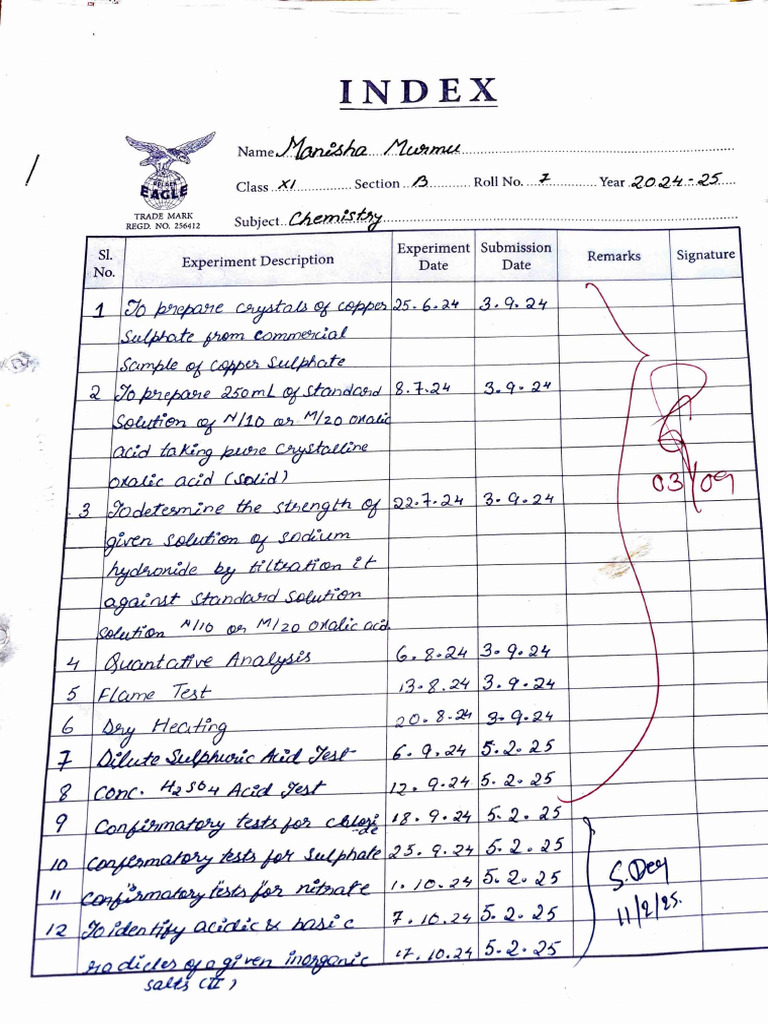 INDEX
Name Manisha Murmu
Class XI Section B Roll No. 7 Year 2024-25
GOLDEN
EAGLE
TRADE MARK
REGD. NO. 256412
Subject Chemistry
Sl. No. Experiment Description Experiment Date Submission Date Remarks Signature
1 To prepare crystals of copper 25.6.24 3.9.24
Sulphate from commercial
Sample of copper sulphate
2 To prepare 250mL of standard 8.7.24 3.9.24
solution of N/10 or M/20 oxalic
acid taking pure crystalline
oxalic acid (solid)
3 To determine the strength of 22.7.24 3.9.24
given solution of sodium
hydronide by tiltration it
against standard solution
solution N/10 or M/20 oxalic acid
4 Quantative Analysis 6.8.24 3.9.24
5 Flame Test 13.8.24 3.9.24
6 Dry Heating 20.8.24 3.9.24
03/09
7 Dilute Sulphuric Acid Test 6.9.24 5.2.25
8 Conc. H2SO4 Acid Test 12.9.24 5.2.25
9 Confirmatory tests for chloride 18.9.24 5.2.25
10 Confermatory tests for sulphate 25.9.24 5.2.25
11 Confirmatory tests for nitrate 1.10.24 5.2.25
12 To identify acidic & basic 7.10.24 5.2.25
radicles of a given inorganic 17.10.24 5.2.25
salts (II)
S. Dey
11/2/25.